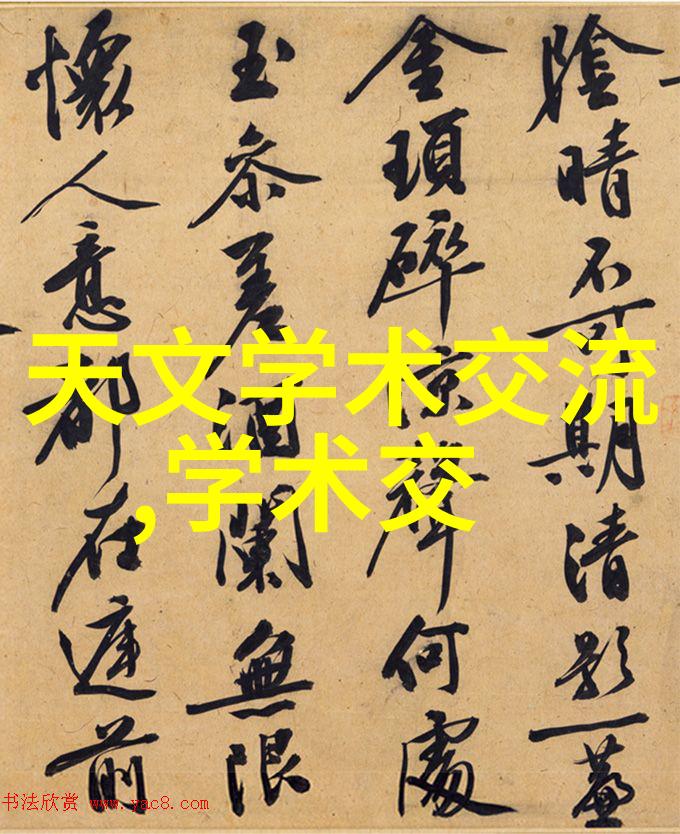 陰晴不可期清影一蓋
金瑣碎涼聲何處
玉參差酒闌無限
懷人意都在遲前
天文学术交流
,学术交
书法欣赏 www.yac8.com